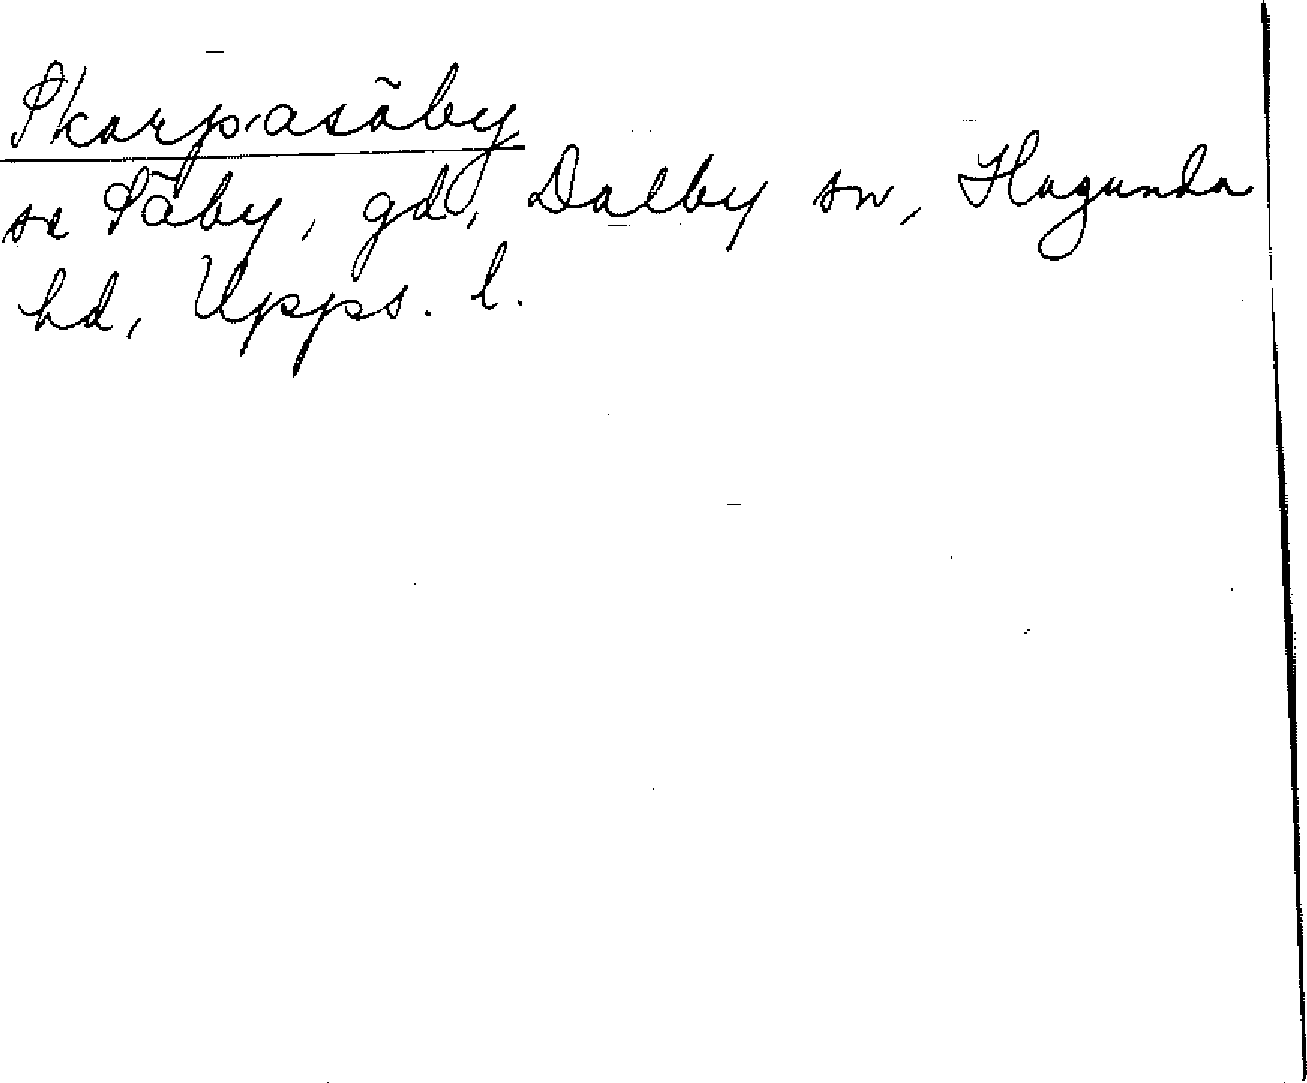 Skarpasäby
se Säby, gd, Dalby sn, Hagunda
hd, Upps. l.